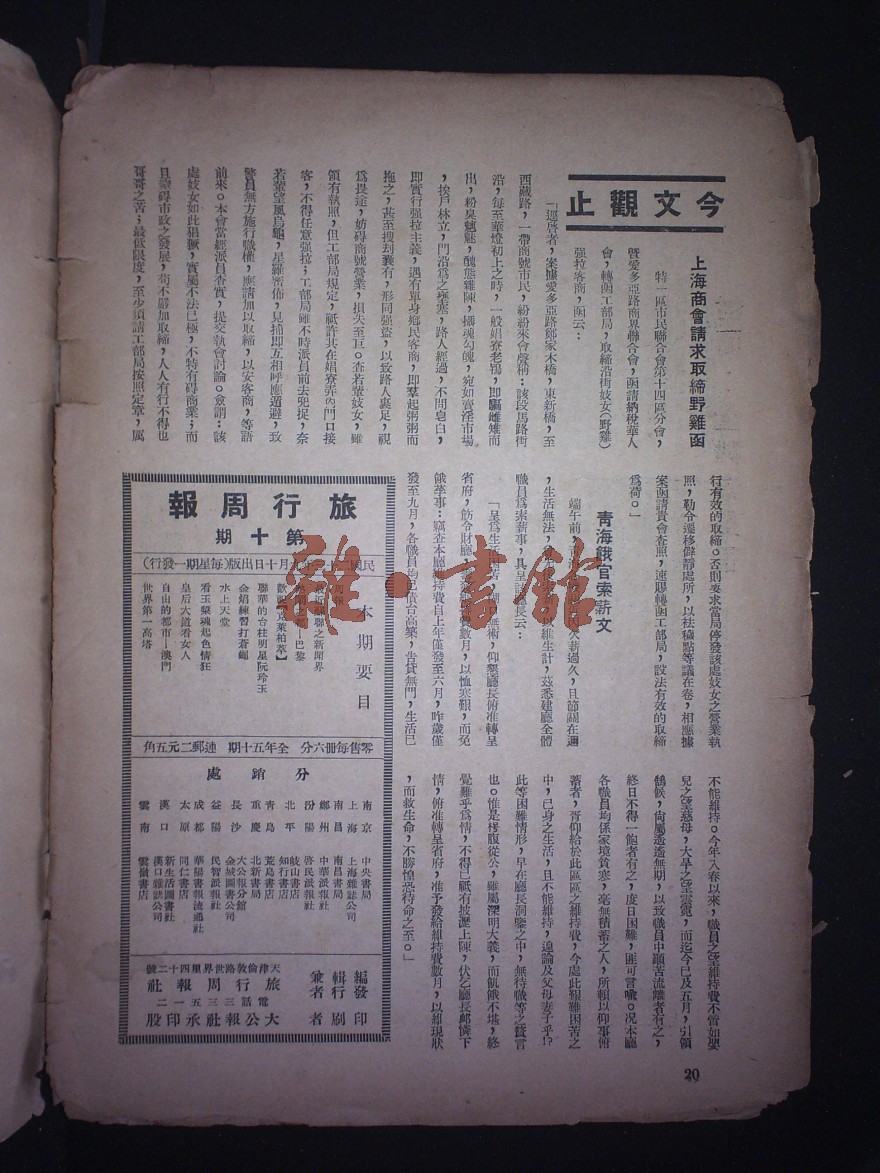 今文觀止
上海商會請求取締野雞函
特一區市民聯合會第十四區分會,
暨愛多亞路商界聯合會,函請納稅華人
會,轉函工部局,取締沿街妓女(野雞)
強拉客商,函云:
「逕啓者,案據愛多亞路鄭家木橋,東新橋,至
西藏路,一帶商號市民,紛紛來會聲稱:該段馬路街
沿,每至華燈初上之時,一般娼寮老鴇,即驅雌雉而
出,粉臭魑魅,醜態雜陳,攝魂勾魄,宛如賣淫市場
,挨戶林立,門沿爲之壅塞,路人經過,不問皂白,
即實行强拉主義,遇有單身鄉民客商,即羣起洶洶而
拖之,甚至搜刦囊有,形同强盜,以致路人裹足,視
爲畏途,妨碍商號營業,損失至巨。查若輩妓女,雖
領有執照,但工部局規定,祇許共在娼寮弄內門口接
客,不得任意强拉;工部局雖不時派員前去兜捉,奈
若輩望風烏龜,星羅密佈,見捕即互相呼應遁避,致
警員無方施行職權,應請加以取締,以安客商,等語
前來。本會當經派員查實,提交執會討論。僉謂:該
處妓女如此猖獗,實屬不法已極,不特有碍商業;而
且礙碍市政之發展,苟不嚴加取締,人人有行不得也
哥哥之苦;最低限度,至少須請工部局按照定章,厲
行有效的取締。否則要求當局停發該處妓女之營業執
照,勒令遷移僻靜處所,以袪穢點等議在卷,相應據
案函請貴會查照,速賜轉函工部局,設法有效的取締
爲荷。」
青海餓官索薪文
端午前,青
欠薪過久,且節關在邇
,生活無法,
維生計,茲悉建廳全體
職員爲索薪事,具呈該
長云:
「呈爲生活
無術,仰懇廳長俯准轉呈
省府,飭令財廳
費數月,以恤寒艱,而免
餓莩事:竊查本廳維持費自上年僅發至六月,昨歲僅
發至九月,各職員均已債台高築,告貸無門,生活已
不能維持。今年入春以來,職員之望維持費不啻如嬰
兒之望慈母,大旱之望雲霓,而迄今已及五月,引領
鵠候,尙屬遙遙無期,以致職員中顚苦流離者有之,
終日不得一飽者有之,度日困難,匪可言喩。况本廳
各職員均係家境貧寒,毫無積蓄之人,所賴以仰事俯
蓄者,胥仰給於此區區之維持費,今處此艱難困苦之
中,已身之生活,且不能維持,遑論及父母妻子乎!?
此等困難情形,早在廳長洞鑒之中,無待職等之贅言
也。惟是枵腹從公,雖屬深明大義,而飢餓不堪,終
覺難乎爲情,不得已祇有披瀝上陳,伏乞廳長邮憐下
情,俯准轉呈省府,准予發給維持費數月,以却現狀
,而救生命,不勝惶恐待命之至。」
旅行周報
第十期
民國二十 月十日出版(每星期一發行)
本期要目
聯之新聞界
都—巴黎
克萊柏蓀】
聯華的台柱明星阮玲玉
金焰練習打蒼蠅
水上天堂
看玉梨魂起色情狂
皇后大道看女人
自由的都市—澳門
世界第一高塔
零售每冊六分 全年五十期 連郵二元五角
分銷處
南京 中央書局
上海 上海雜誌公司
南昌 南昌書局
鄭州 中華派報社
汾陽 啓民派報社
北平 岐山書店
知行書店
青島 荒島書店
重慶 北新書局
長沙 大公報分館
金城圖書公司
益陽 民智派報社
成都 華陽書報流通社
太原 同仁書店
新生活圖書社
漢口 漢口雜誌公司
雲南 雲嶺書店
編輯兼發行者 旅行周報社
天津倫敦路世界里四十二號
電話三三五一二
印刷者 大公報社承印股
20
雜·書館